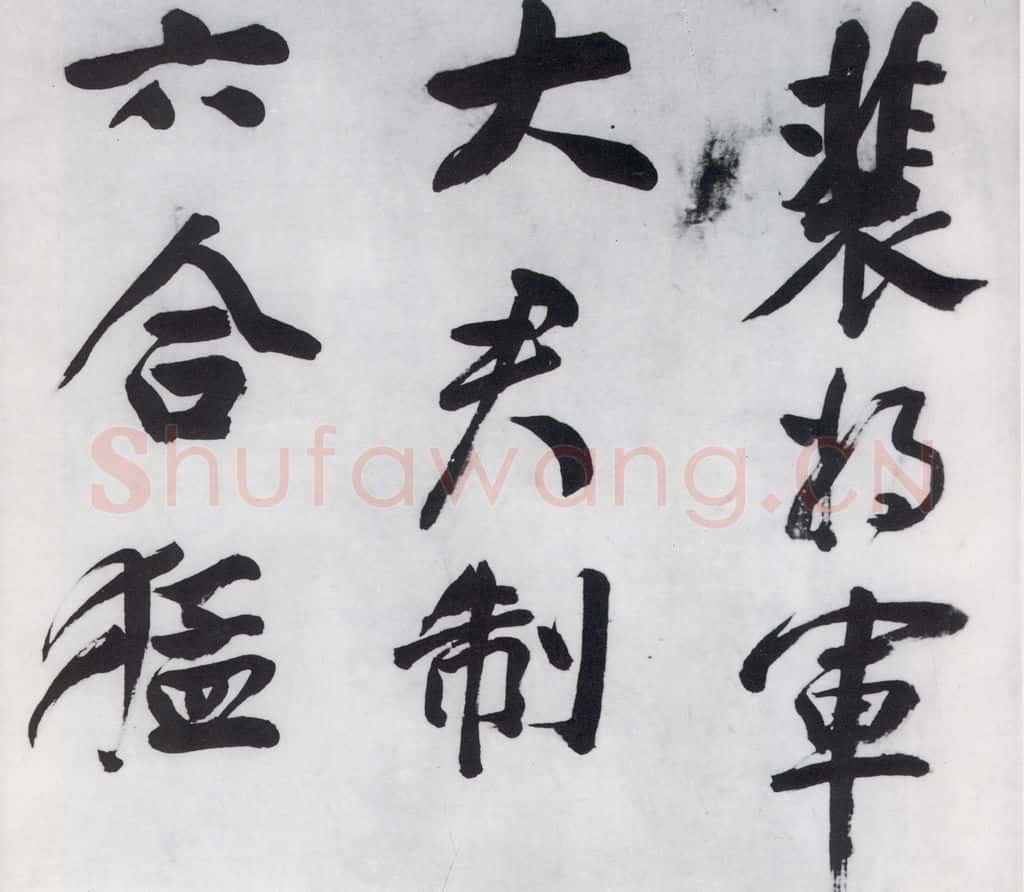 裴将军
大君制
六合猛
Shufawang.CN